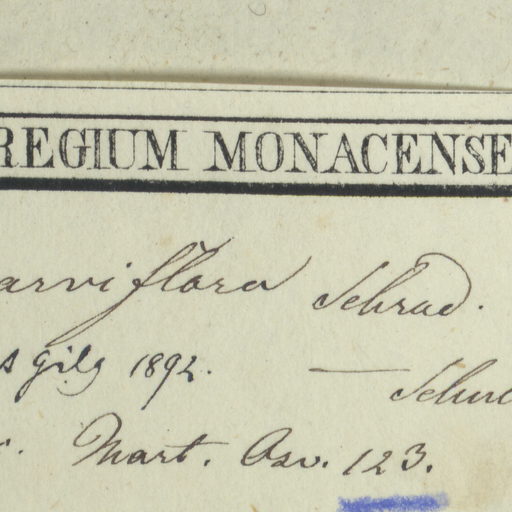 REGIUM MONACENSE
arviflora Schrad.
s gilg 1892. —
Mart. 123.